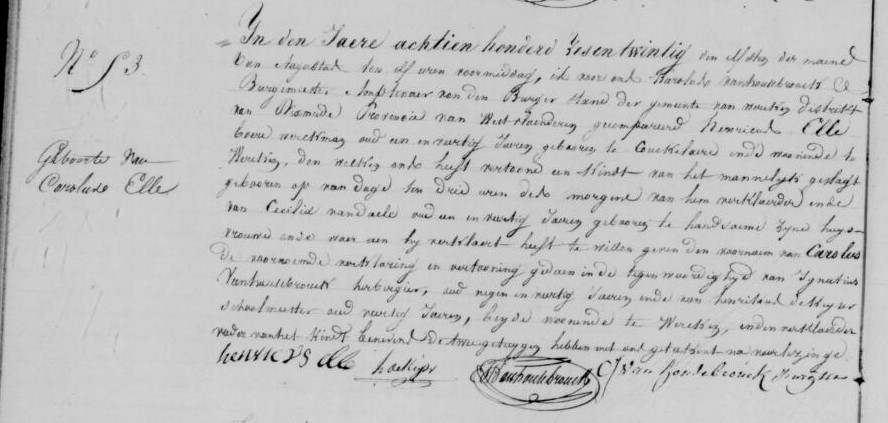 N° 53.
Geboorte van
Carolus Elle
In den Jaere achtien honderd Zesentwintig den elfsten der maend
van Augustus ten elf uren voormiddag, is voor ons Carolus vanhoutebrouck
Burgemeester Amptenaer van den Burger stand der gemeente van district
van Provencie van Westvlaenderen gecompareerd henricus Elle
boere werckman oud een en veertig Jaeren geboren te Couckelaere ende woonende te
Wercken, den welken ons heeft vertoond een Kindt van het mannelyk geslagt
geboren op van dage ten drie uren des morgens van hem verklaerder ende
van Cecilia vandaele oud een en veertig Jaeren geboren te handsaeme zyne huys-
vrouwe ende waer aen hy verklaert heeft te willen geven den voornaem van Carolus
De voornoemde verklaring en vertooning gedaen in de tegenwoordighyd van Ignatius
Vanhoutebrouck herbergier, oud negen en veertig Jaeren ende van henricus deKeyser
schoolmeester oud veertig Jaeren, beyde woonende te Wercken, en den verklaerder
vader van het Kindt benevens de twee getuygen hebben met ons geteekent na voorlezinge
henricVS elle deKeyser Vanhoutebrouck CJ Van houtebrouck burgm